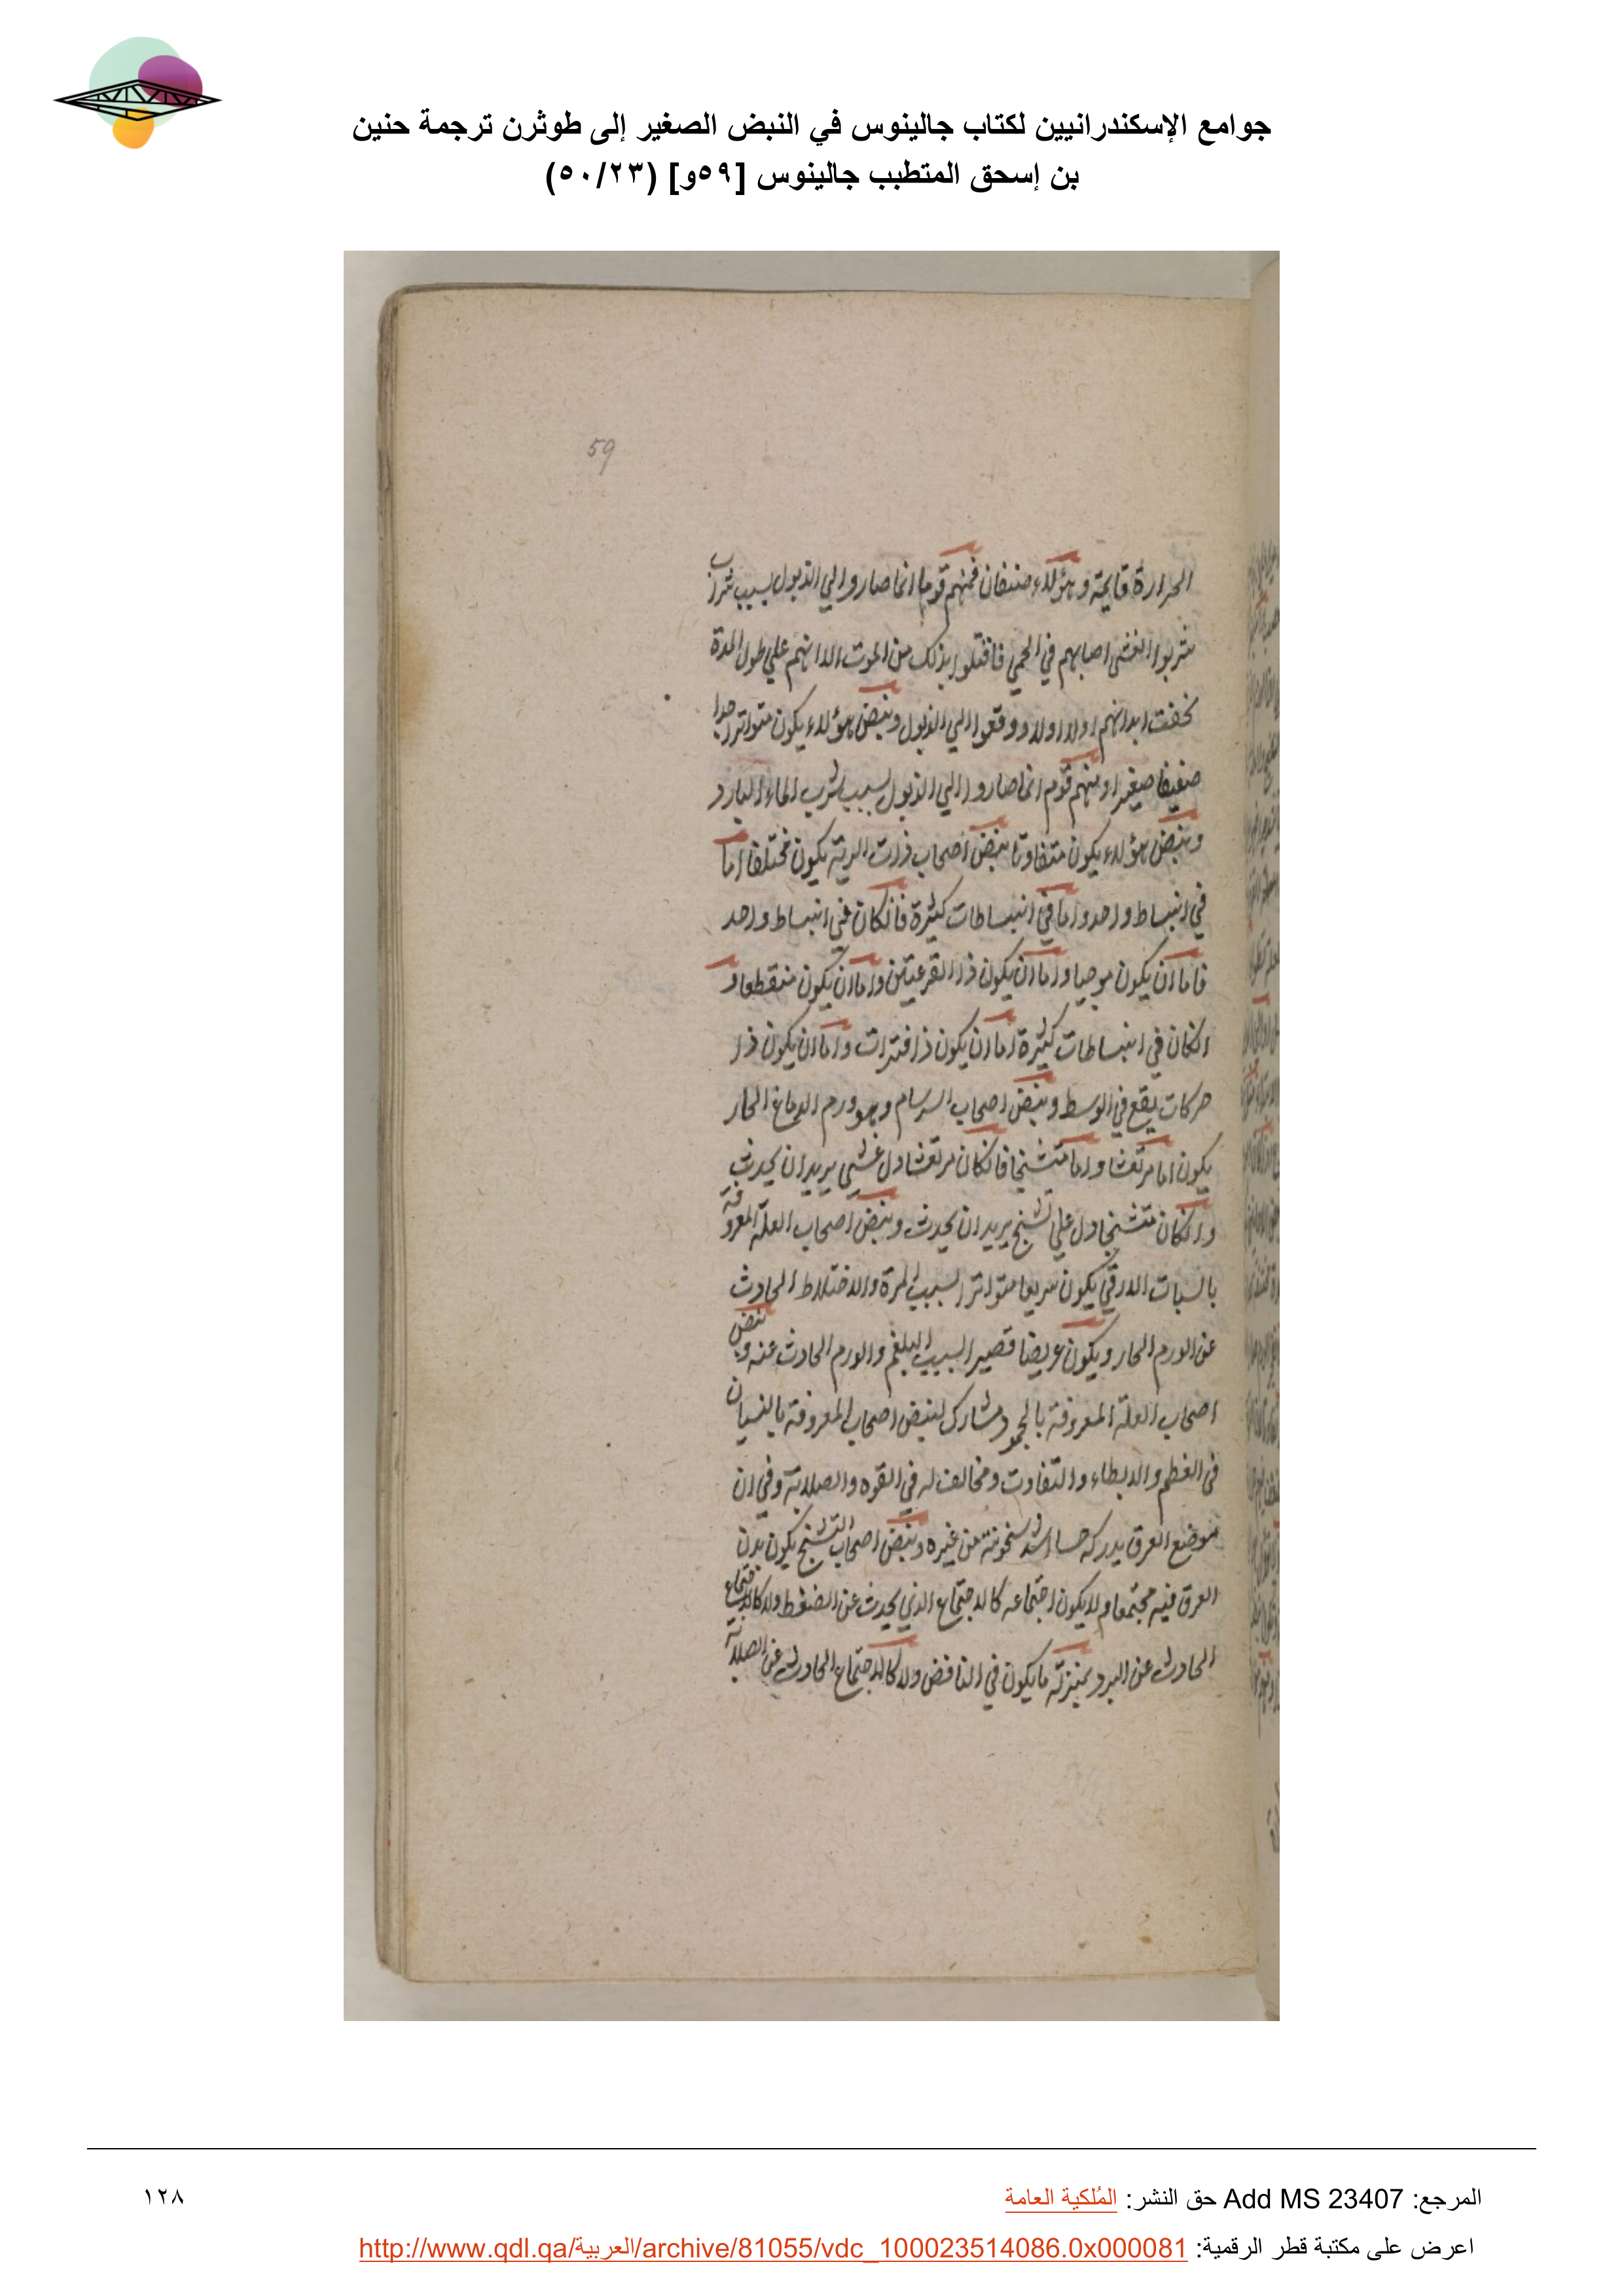 جوامع الإسكندرانيين لكتاب جالينوس في النبض الصغير إلى طوثرن ترجمة حنين
بن إسحق المتطبب جالينوس [٥٩و] (٥٠/٢٣)
59
الحرارة قايمة وهؤلاء صنفان فمنهم قوما انما صاروا الي الذبول بسبب شراب
شربوا لغشى اصابهم في الحمي فافتلوا بذلك من الموت الا انهم علي طول المدة
نحفت ابدانهم اولا اولا ووقعوا الي الذبول ونبض هؤلاء يكون متواترا جدا
ضعيفا صغيرا ومنهم قوم انما صاروا الي الذبول بسبب شرب الماء البارد
ونبض هؤلاء يكون متفاوتا نبض اصحاب ذات الرية يكون مختلفا اما
في انبساط واحد واما في انبساطات كثيرة فانكان في انبساط واحد
فاما ان يكون موجيا واما ان يكون ذا القرعتين واما ان يكون منقطعا و
انكان في انبساطات كثيرة اما ان يكون ذا فترات واما ان يكون ذا
حركات يقع في الوسط ونبض اصحاب السرسام وهو ورم الدماغ الحار
يكون اما مرتعشا واما متشنجا فانكان مرتعشا دل غشي يريد ان يحدث
وانكان متشنجا دل علي تشنج يريد ان يحدث ونبض اصحاب العلة المعروفة
بالسبات الارقي يكون سريعا متواترا بسبب المرة والاختلاط الحادث
عن الورم الحار ويكون عريضا قصيرا بسبب البلغم والورم الحادث عنه ونبض
اصحاب العلة المعروفة بالجمود مشارك لنبض اصحاب المعروفة بالنسيان
في العظم والابطاء والتفاوت ومخالف له في القوه والصلابة وفي ان
موضع العرق يدركه حسا اشد سخونة من غيره ونبض اصحاب التشنج يكون بدن
العرق فيه مجتمعا ولا يكون اجتماعه كالاجتماع الذي يحدث عن الضغط ولا كالاجتماع
الحادث عن البرد بمنزلة ما يكون في النافض ولا كالاجتماع الحادث عن الصلابة
المرجع: Add MS 23407 حق النشر: المُلكية العامة
١٢٨
اعرض على مكتبة قطر الرقمية: http://www.qdl.qa/العربية/archive/81055/vdc_100023514086.0x000081